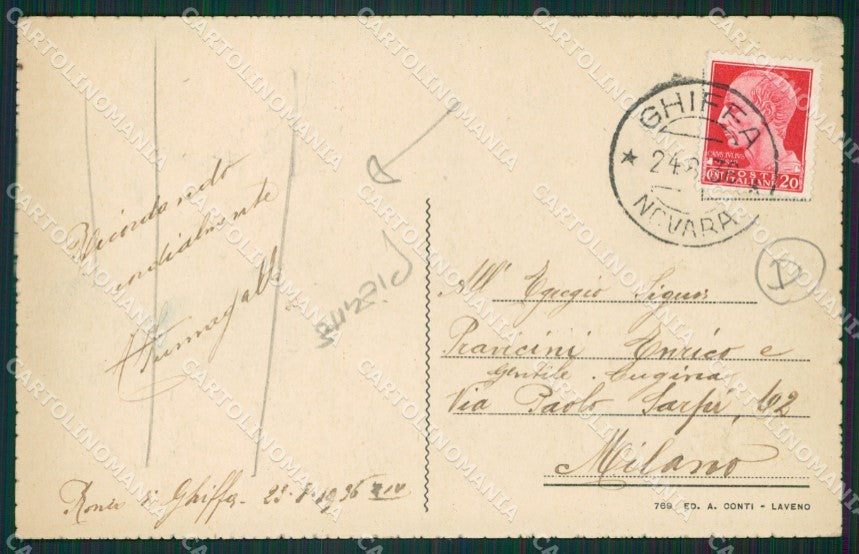 Ricordando
cordialmente
Fumagalli
Ronco di Ghiffa - 23-8-1936 XIV
GHIFFA
24.8.36
NOVARA
POSTE ITALIANE 20
V
All' Egregio Signor
Pravicini Enrico e
gentile Cugina
Via Paolo Sarpi, 62
Milano
769 ED. A. CONTI - LAVENO
CARTOLINOMANIA